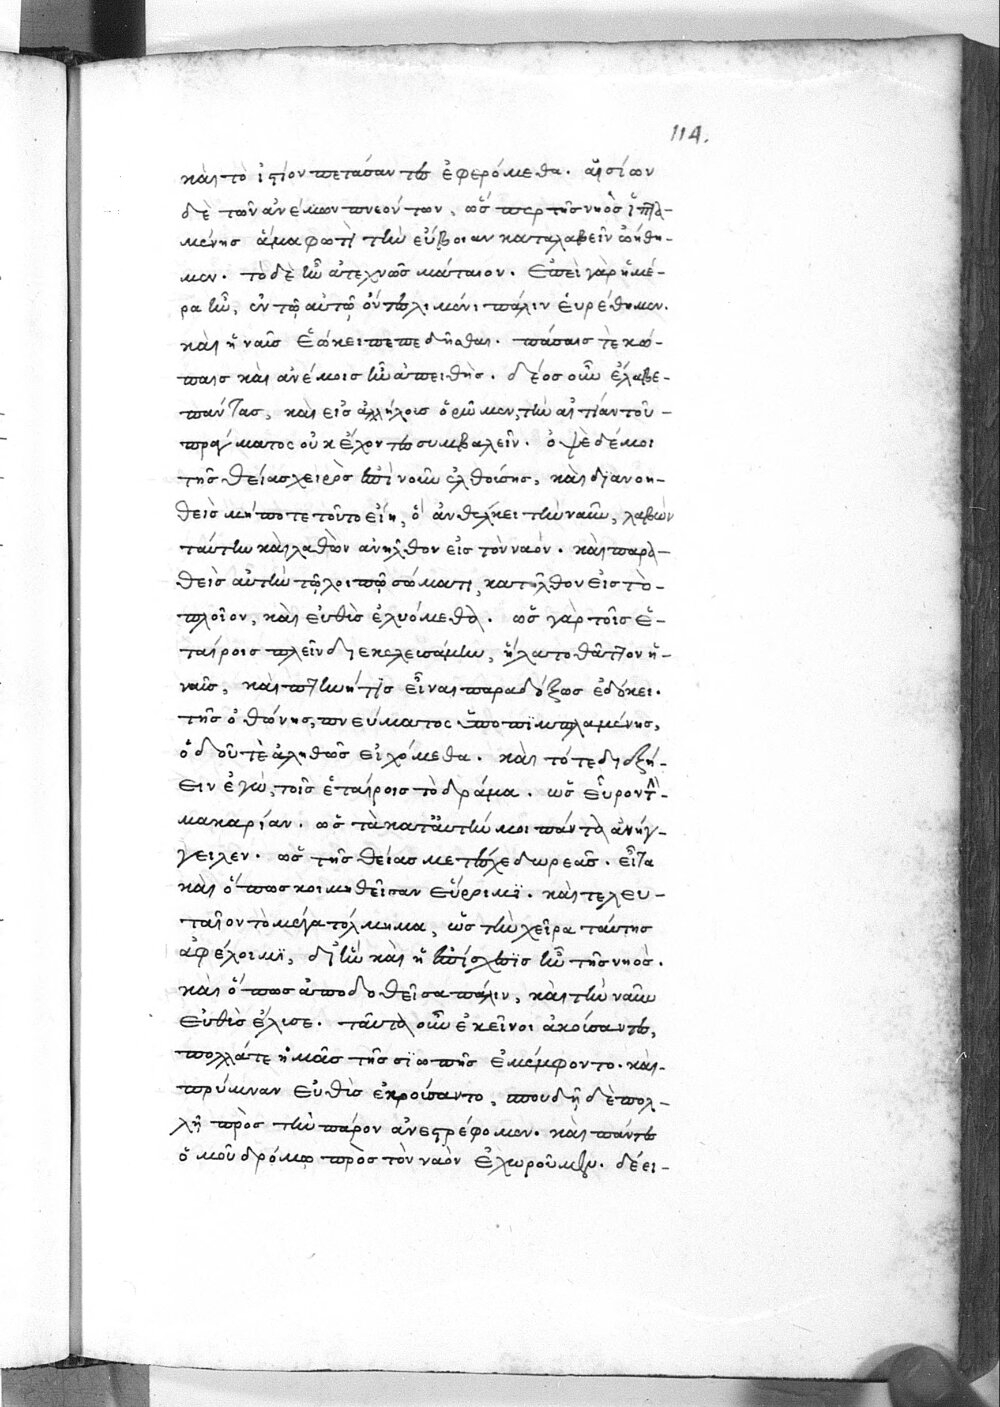 114.
καὶ τὸ ἱστίον πετάσαντες ἐφερόμεθα. αἰσίων
δὲ τῶν ἀνέμων πνεόντων, ὥσπερ τῆς νηὸς ἱπτα-
μένης ἅμα φωτὶ τὴν εὔβοιαν καταλαβεῖν ᾠήθη-
μεν. τὸ δὲ ἦν ἀτεχνῶς μάταιον. Ἐπεὶ γὰρ ἡμέ-
ρα ἦν, ἐν τῷ αὐτῷ ὄντες λιμένι πάλιν εὑρέθημεν.
καὶ ἡ ναῦς ἐῴκει πεπεδῆσθαι. πάσαις τε κώ-
παις καὶ ἀνέμοις ἦν ἀπειθής. δέος οὖν ἔλαβε
πάντας, καὶ εἰς ἀλλήλοις ὁρῶμεν, τὴν αἰτίαν τοῦ
πράγματος οὐκ ἔχοντες συμβαλεῖν. ὀψὲ δέ μοι
τῆς θείας χειρὸς ἐπὶ νοῦν ἐλθούσης, καὶ διανοη-
θεὶς μήποτε τοῦτο εἴη, ὃ ἀνθέλκει τὴν ναῦν, λαβὼν
ταύτην καὶ λαθὼν ἀνῆλθον εἰς τὸν ναόν. καὶ παρα-
θεὶς αὐτὴν τῷ λοιπῷ σώματι, κατῆλθον εἰς τὸ
πλοῖον, καὶ εὐθὺς ἐλυόμεθα. ὡς γὰρ τοῖς ἑ-
ταίροις πλεῖν διεκελευσάμην, ἥλατο θᾶττον ἡ
ναῦς, καὶ πτηνή τις εἶναι παραδόξως ἐδόκει.
τῆς ὀθόνης, πνεύματος ὑποπιμπλαμένης,
ὁδοῦ τε ἀληθῶς εἰχόμεθα. καὶ τότε διεξῄ-
ειν ἐγὼ, τοῖς ἑταίροις τὸ δράμα. ὡς εὗρον τὴν
μακαρίαν. ὡς τὰ κατ' αὐτήν μοι πάντα ἀνήγ-
γειλεν. ὡς τῆς θείας μετέσχε δωρεᾶς. εἶτα
καὶ ὅπως κοιμηθεῖσαν εὕροιμι. καὶ τελευ-
ταῖον τὸ μέγα τόλμημα, ὡς τὴν χεῖρα ταύτης
ἀφέλοιμι, δι' ἣν καὶ ἡ ἐπίσχεσις ἦν τῆς νηός.
καὶ ὅπως ἀποδοθεῖσα πάλιν, καὶ τὴν ναῦν
εὐθὺς ἔλυσε. ταῦτα οὖν ἐκεῖνοι ἀκούσαντες,
πολλά τε ἡμᾶς τῆς σιωπῆς ἐμέμφοντο. καὶ
πρύμναν εὐθὺς ἐκρούσαντο, σπουδῇ δὲ πολ-
λῇ πρὸς τὴν πάρον ἀνεστρέφομεν. καὶ πάντες
ὁμοῦ δρόμῳ πρὸς τὸν ναὸν ἐχωροῦμεν. δέει-